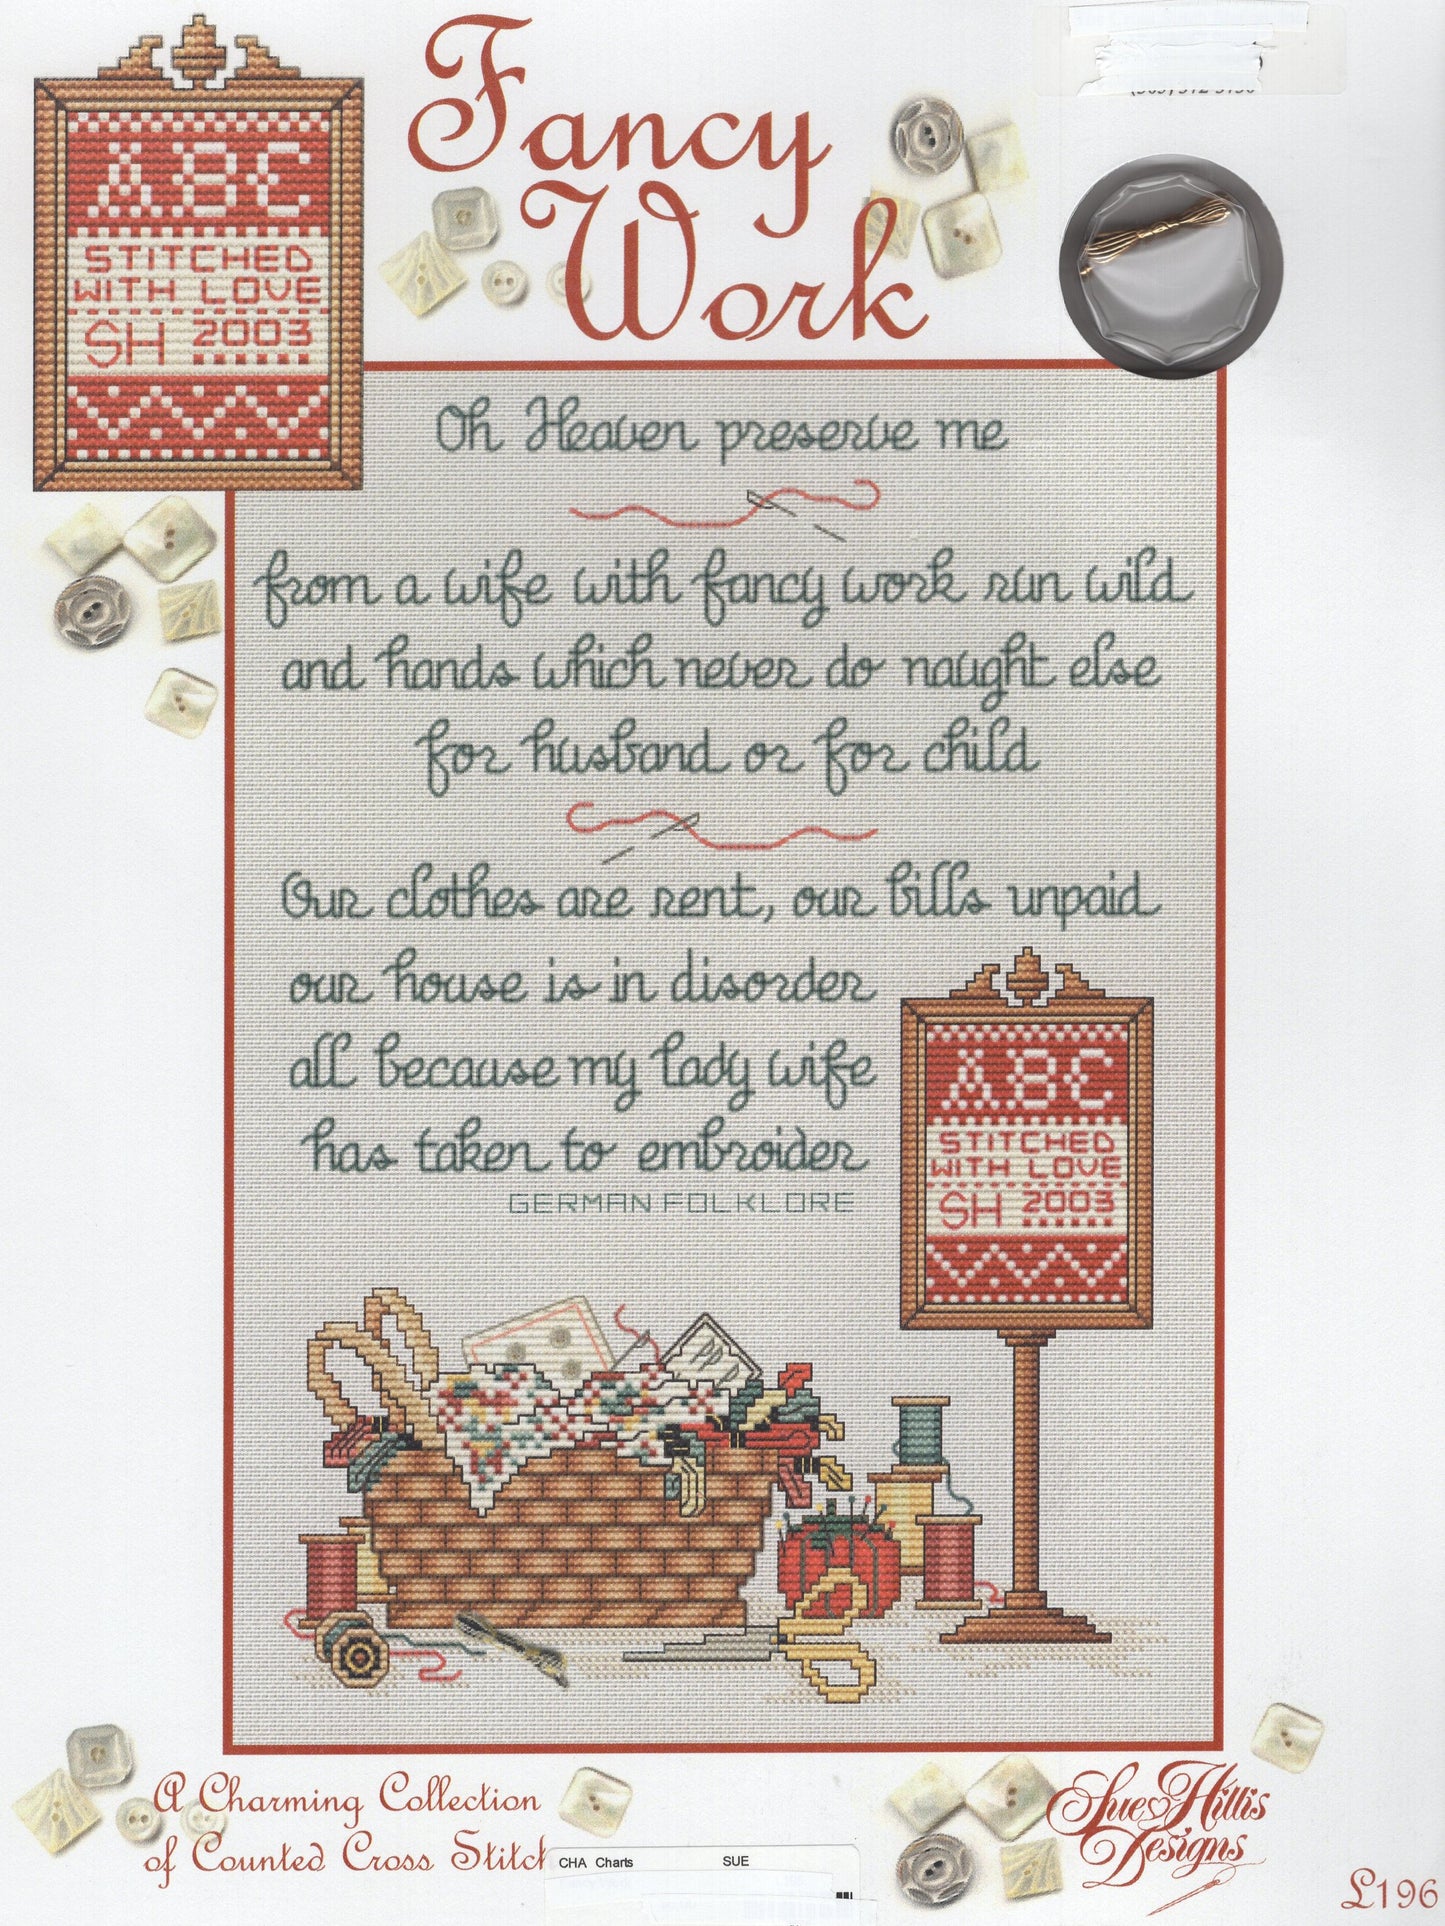 Fancy
Work
ABC
STITCHED
WITH LOVE
SH 2003
Oh Heaven preserve me
from a wife with fancy work run wild
and hands which never do naught else
for husband or for child
Our clothes are rent, our bills unpaid
our house is in disorder
all because my lady wife
has taken to embroider
GERMAN FOLKLORE
ABC
STITCHED
WITH LOVE
SH 2003
A Charming Collection
of Counted Cross Stitch
CHA Charts SUE
Sue Hillis
Designs
L196